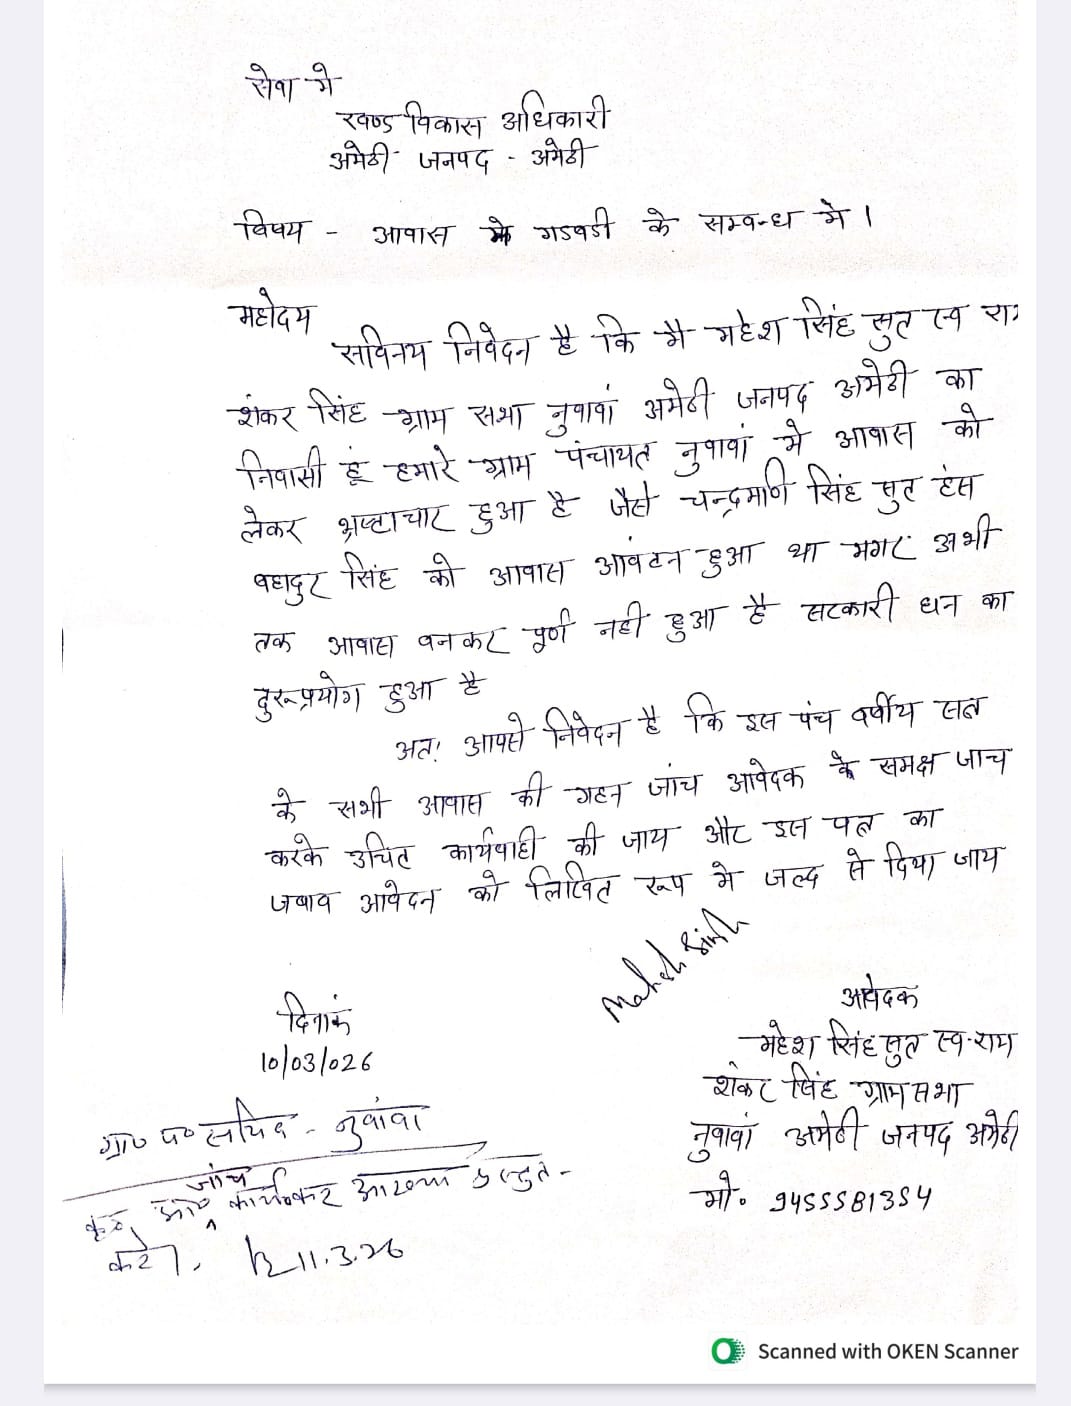 सेवा मे
खण्ड विकास अधिकारी
अमेठी जनपद - अमेठी
विषय - आवास मे गडवडी के सम्वन्ध मे।
महोदय
सविनय निवेदन है कि मै महेश सिंह सुत स्व राम
शंकर सिंह ग्राम सभा नुवावां अमेठी जनपद अमेठी का
निवासी हूं हमारे ग्राम पंचायत नुवावां मे आवास को
लेकर भ्रष्टाचार हुआ है जैसे चन्द्रमणि सिंह सुत हंस
वहादुर सिंह को आवास आवंटन हुआ था मगर अभी
तक आवास वनकर पूर्ण नही हुआ है सरकारी धन का
दुरूप्रयोग हुआ है
अतः आपसे निवेदन है कि इस पंच वर्षीय सत्र
के सभी आवास की गहन जांच आवेदक के समक्ष जाच
करके उचित कार्यवाही की जाय और इस पत्र का
जवाव आवेदन को लिखित रूप मे जल्द से दिया जाय
Mahesh Singh
आवेदक
महेश सिंह सुत स्व. राम
शंकर सिंह ग्राम सभा
नुवावां अमेठी जनपद अमेठी
मो. 9455581354
दिनांक
10/03/026
ग्रा० प० सचिव - नुवांवा
जांच
कर आख्या प्रस्तुत -
करें।
11.3.26
Scanned with OKEN Scanner